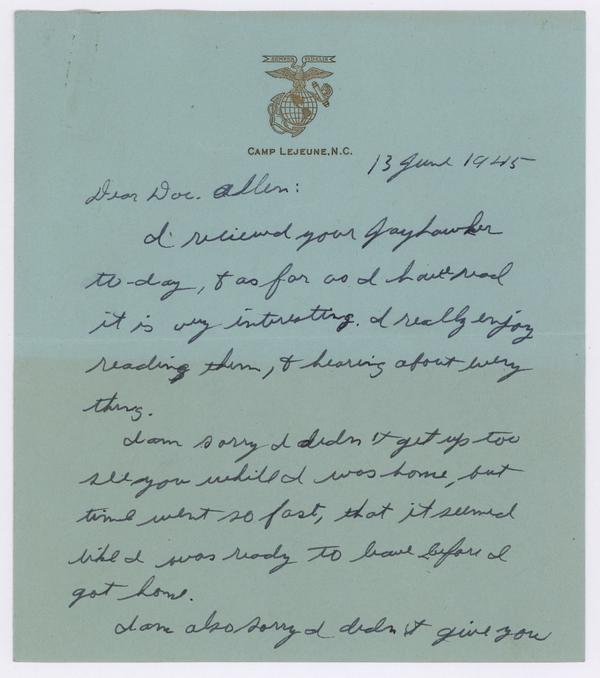 SEMPER FIDELIS
CAMP LEJEUNE, N.C.
13 June 1945
Dear Doc. Allen:
I recieved your Jayhawker
to-day, & as far as I have read
it is very interesting. I really enjoy
reading them, & hearing about every
thing.
I am sorry I didn't get up too
see you while I was home, but
time went so fast, that it seemed
like I was ready to leave before I
got home.
I am also sorry I didn't give you